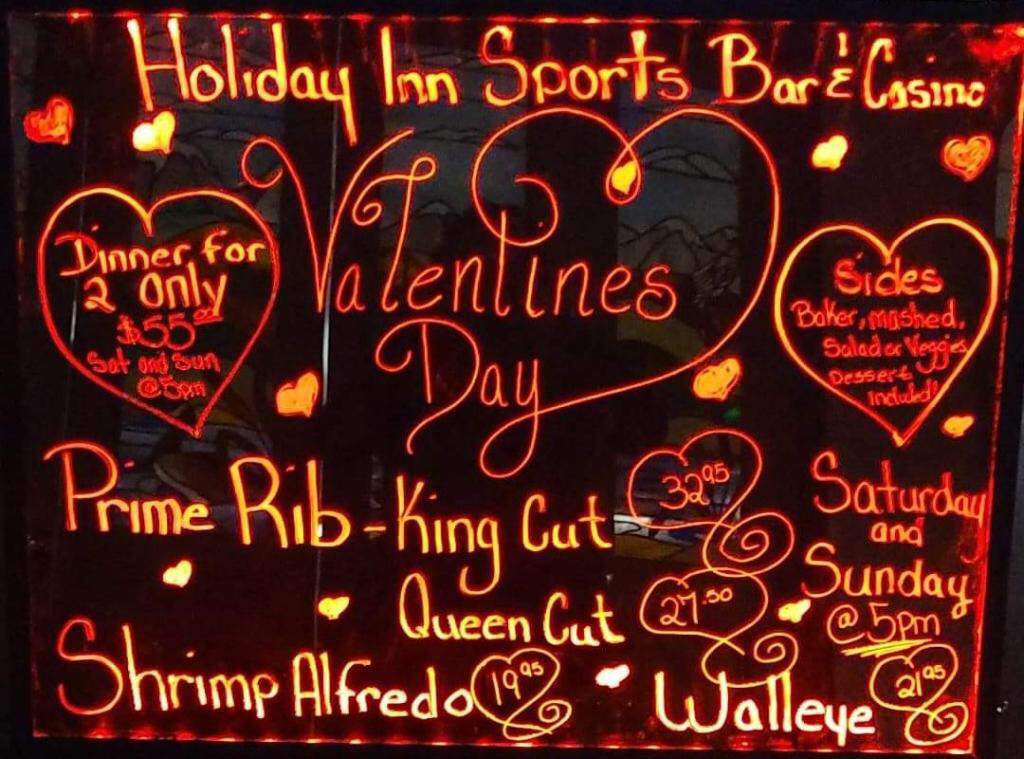 Holiday Inn Sports Bar & Casino
Valentines
Day
Dinner for
2 only
$55.00
Sat and Sun
@5pm
Sides
Baker, mashed,
Salad or Veggies
Dessert
included!
Prime Rib - King Cut 32.95
Queen Cut 27.50
Saturday
and
Sunday
@ 5pm
Shrimp Alfredo 19.95
Walleye 21.95